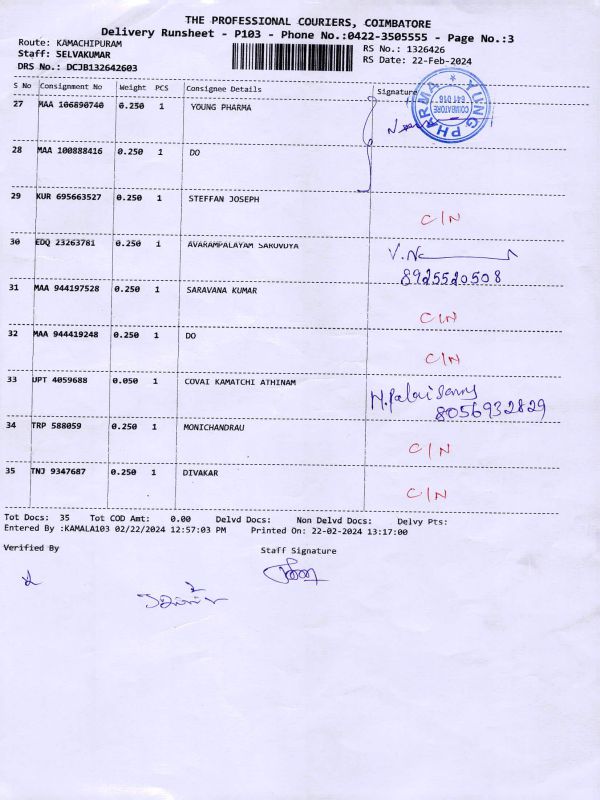 THE PROFESSIONAL COURIERS, COIMBATORE
Delivery Runsheet - P103 - Phone No.:0422-3505555 - Page No.:3
Route: KAMACHIPURAM RS No.: 1326426
Staff: SELVAKUMAR RS Date: 22-Feb-2024
DRS No.: DCJB132642603
S No Consignment No Weight PCS Consignee Details Signature
27 MAA 106890740 0.250 1 YOUNG PHARMA
YOUNG PHARMA COIMBATORE
28 MAA 100888416 0.250 1 DO
29 KUR 695663527 0.250 1 STEFFAN JOSEPH
C/N
30 EDQ 23263781 0.250 1 AVARAMPALAYAM SAROVOYA
8925520508
31 MAA 944197528 0.250 1 SARAVANA KUMAR
C/N
32 MAA 944419248 0.250 1 DO
C/N
33 UPT 4059688 0.050 1 COVAI KAMATCHI ATHINAM
8056932829
34 TRP 588059 0.250 1 MONICHANDRAU
C/N
35 TNJ 9347687 0.250 1 DIVAKAR
C/N
Tot Docs: 35 Tot COD Amt: 0.00 Delvd Docs: Non Delvd Docs: Delvy Pts:
Entered By :KAMALA103 02/22/2024 12:57:03 PM Printed On: 22-02-2024 13:17:00
Verified By Staff Signature